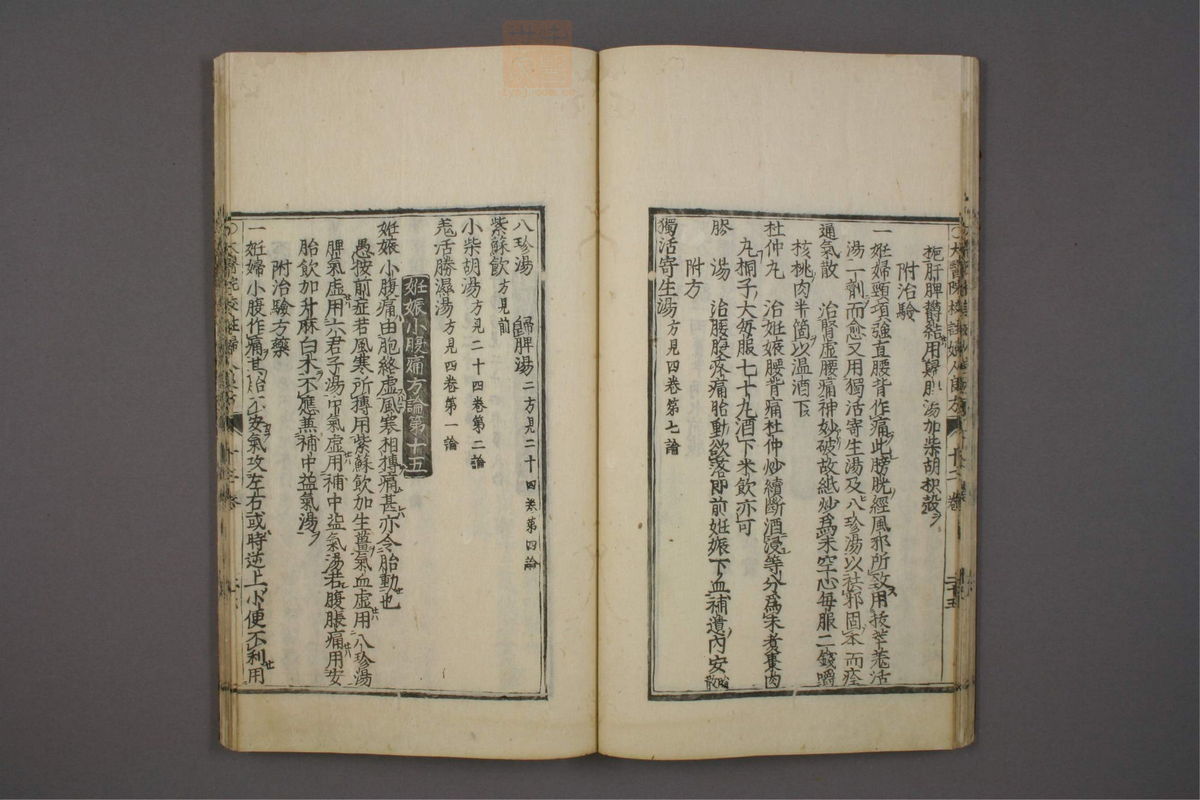 拖肝脾鬱結用歸脾湯加柴胡枳殼
附治驗
一妊婦頸項強直腰背作痛此膀胱經風邪所致用拔萃羗活
湯一劑而愈又用獨活寄生湯及八珍湯以祛邪固本而痊
通氣散　治腎虛腰痛神妙破故紙炒爲末空心每服二錢嚼
核桃肉半箇以温酒下
杜仲丸　治妊娠腰背痛杜仲炒續斷酒浸等分爲末煮棗肉
丸桐子大每服七十丸酒下米飲亦可
湯　治腰腹疼痛胎動欲落即前妊娠下血補遺內安胎散
附方
獨活寄生湯方見四卷第七論
八珍湯　歸脾湯二方見二十四卷第四論
紫蘇飲方見前
小柴胡湯方見二十四卷第二論
羗活勝濕湯方見四卷第一論
妊娠小腹痛方論第十五
妊娠小腹痛由胞絡虛風寒相搏痛甚亦令胎動也
愚按前症若風寒所搏用紫蘇飲加生薑氣血虛用八珍湯
脾氣虛用六君子湯中氣虛用補中益氣湯若腹脹痛用安
胎飲加升麻白朮不應兼補中益氣湯
附治驗方藥
一妊婦小腹作痛其胎不安氣攻左右或時逆上小便不利用